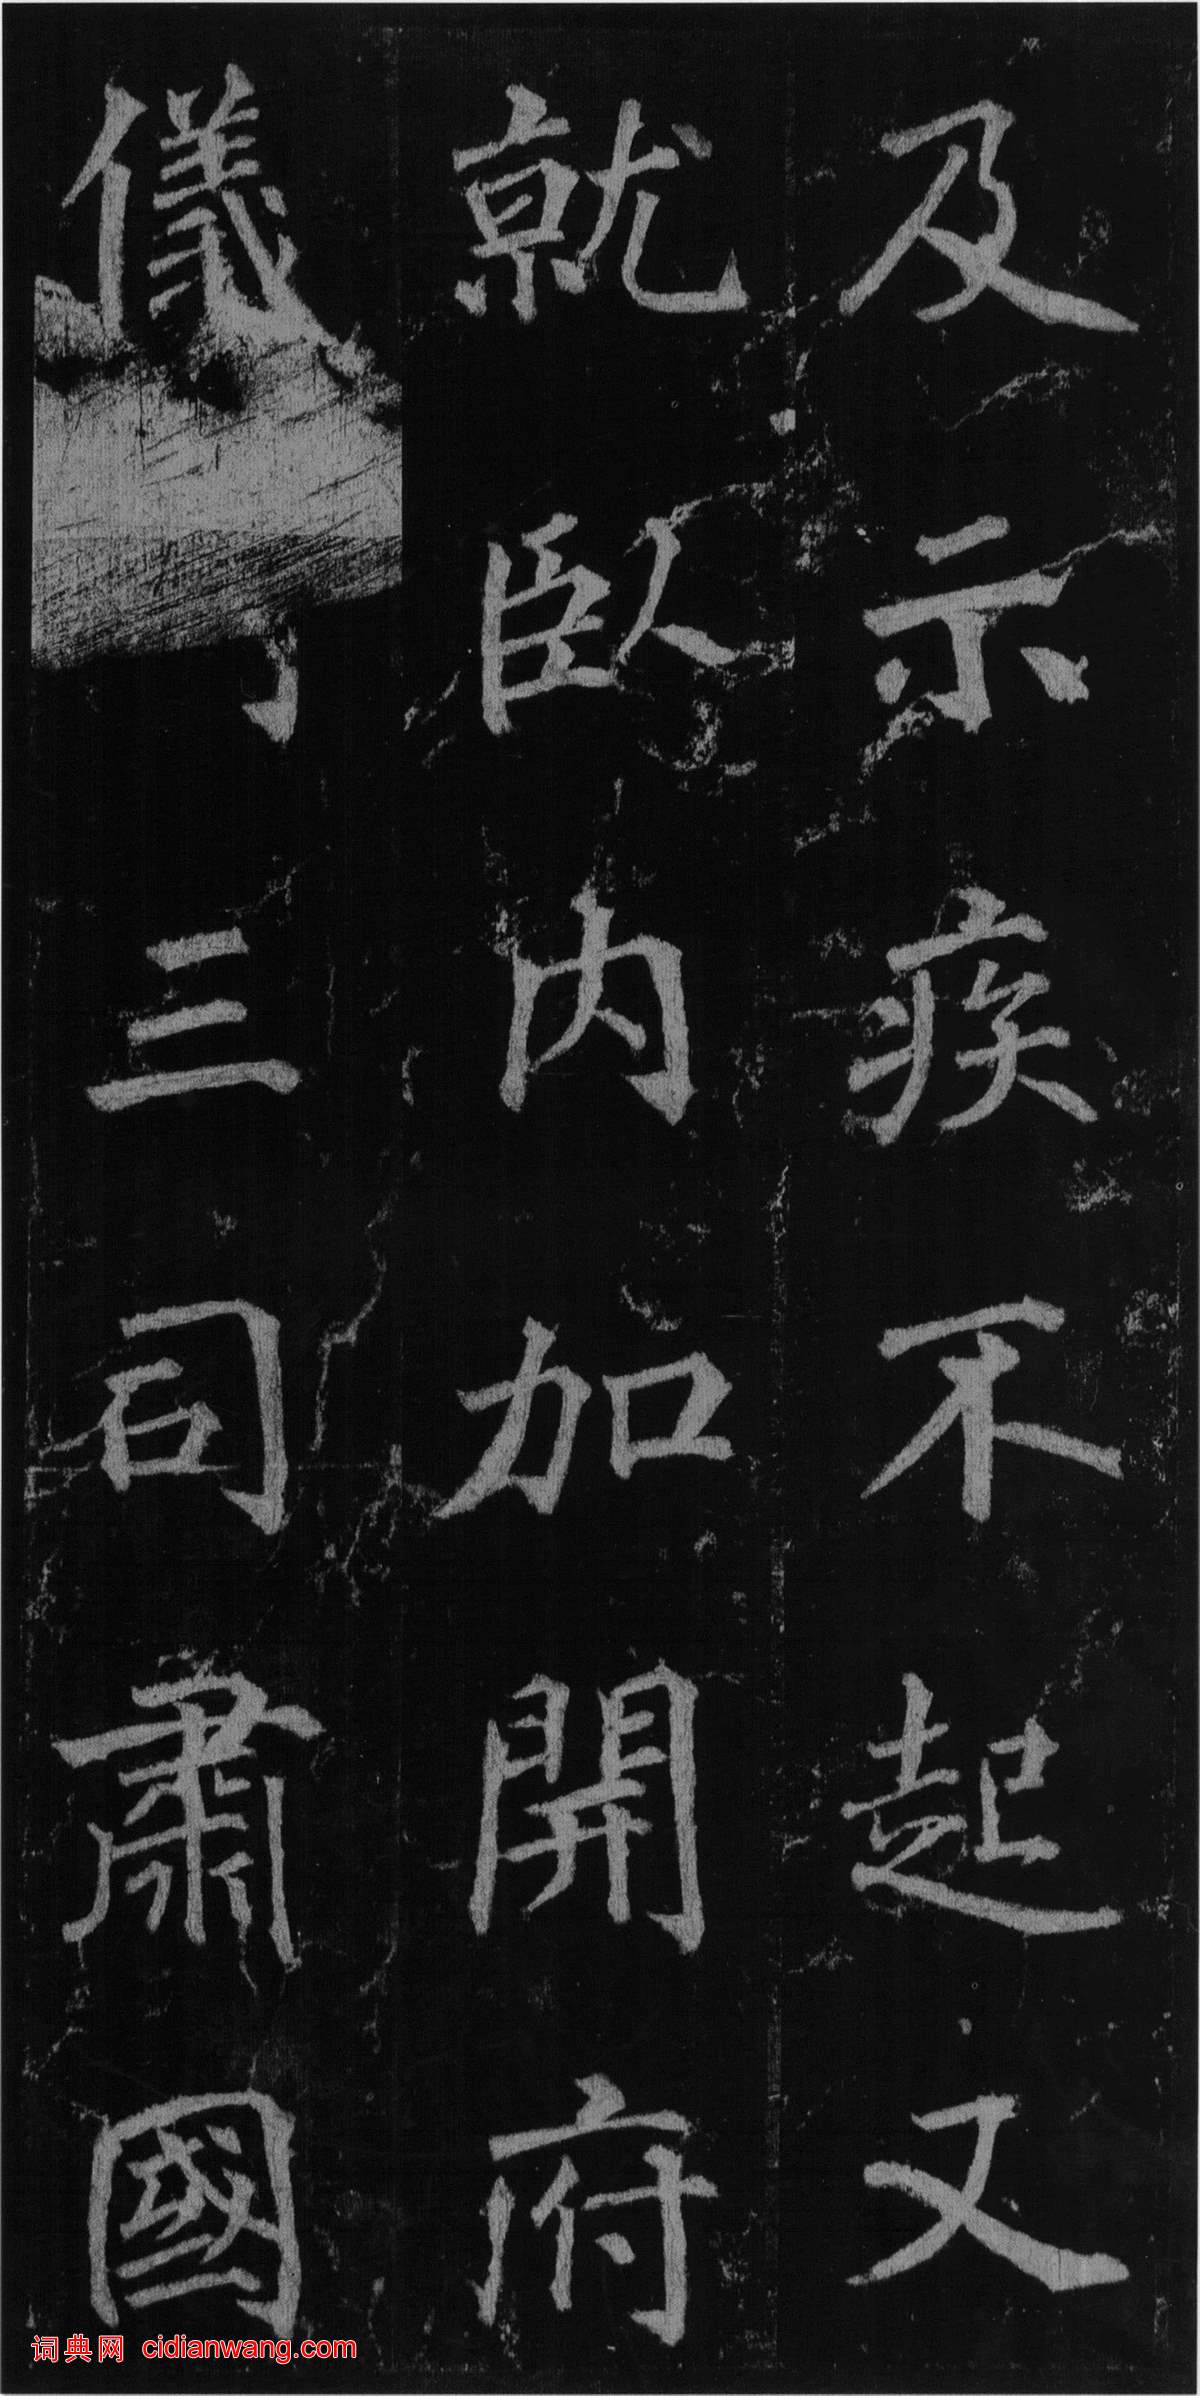 及示疾不起又
就臥內加開府
儀三司肅國
词典网 cidianwang.com